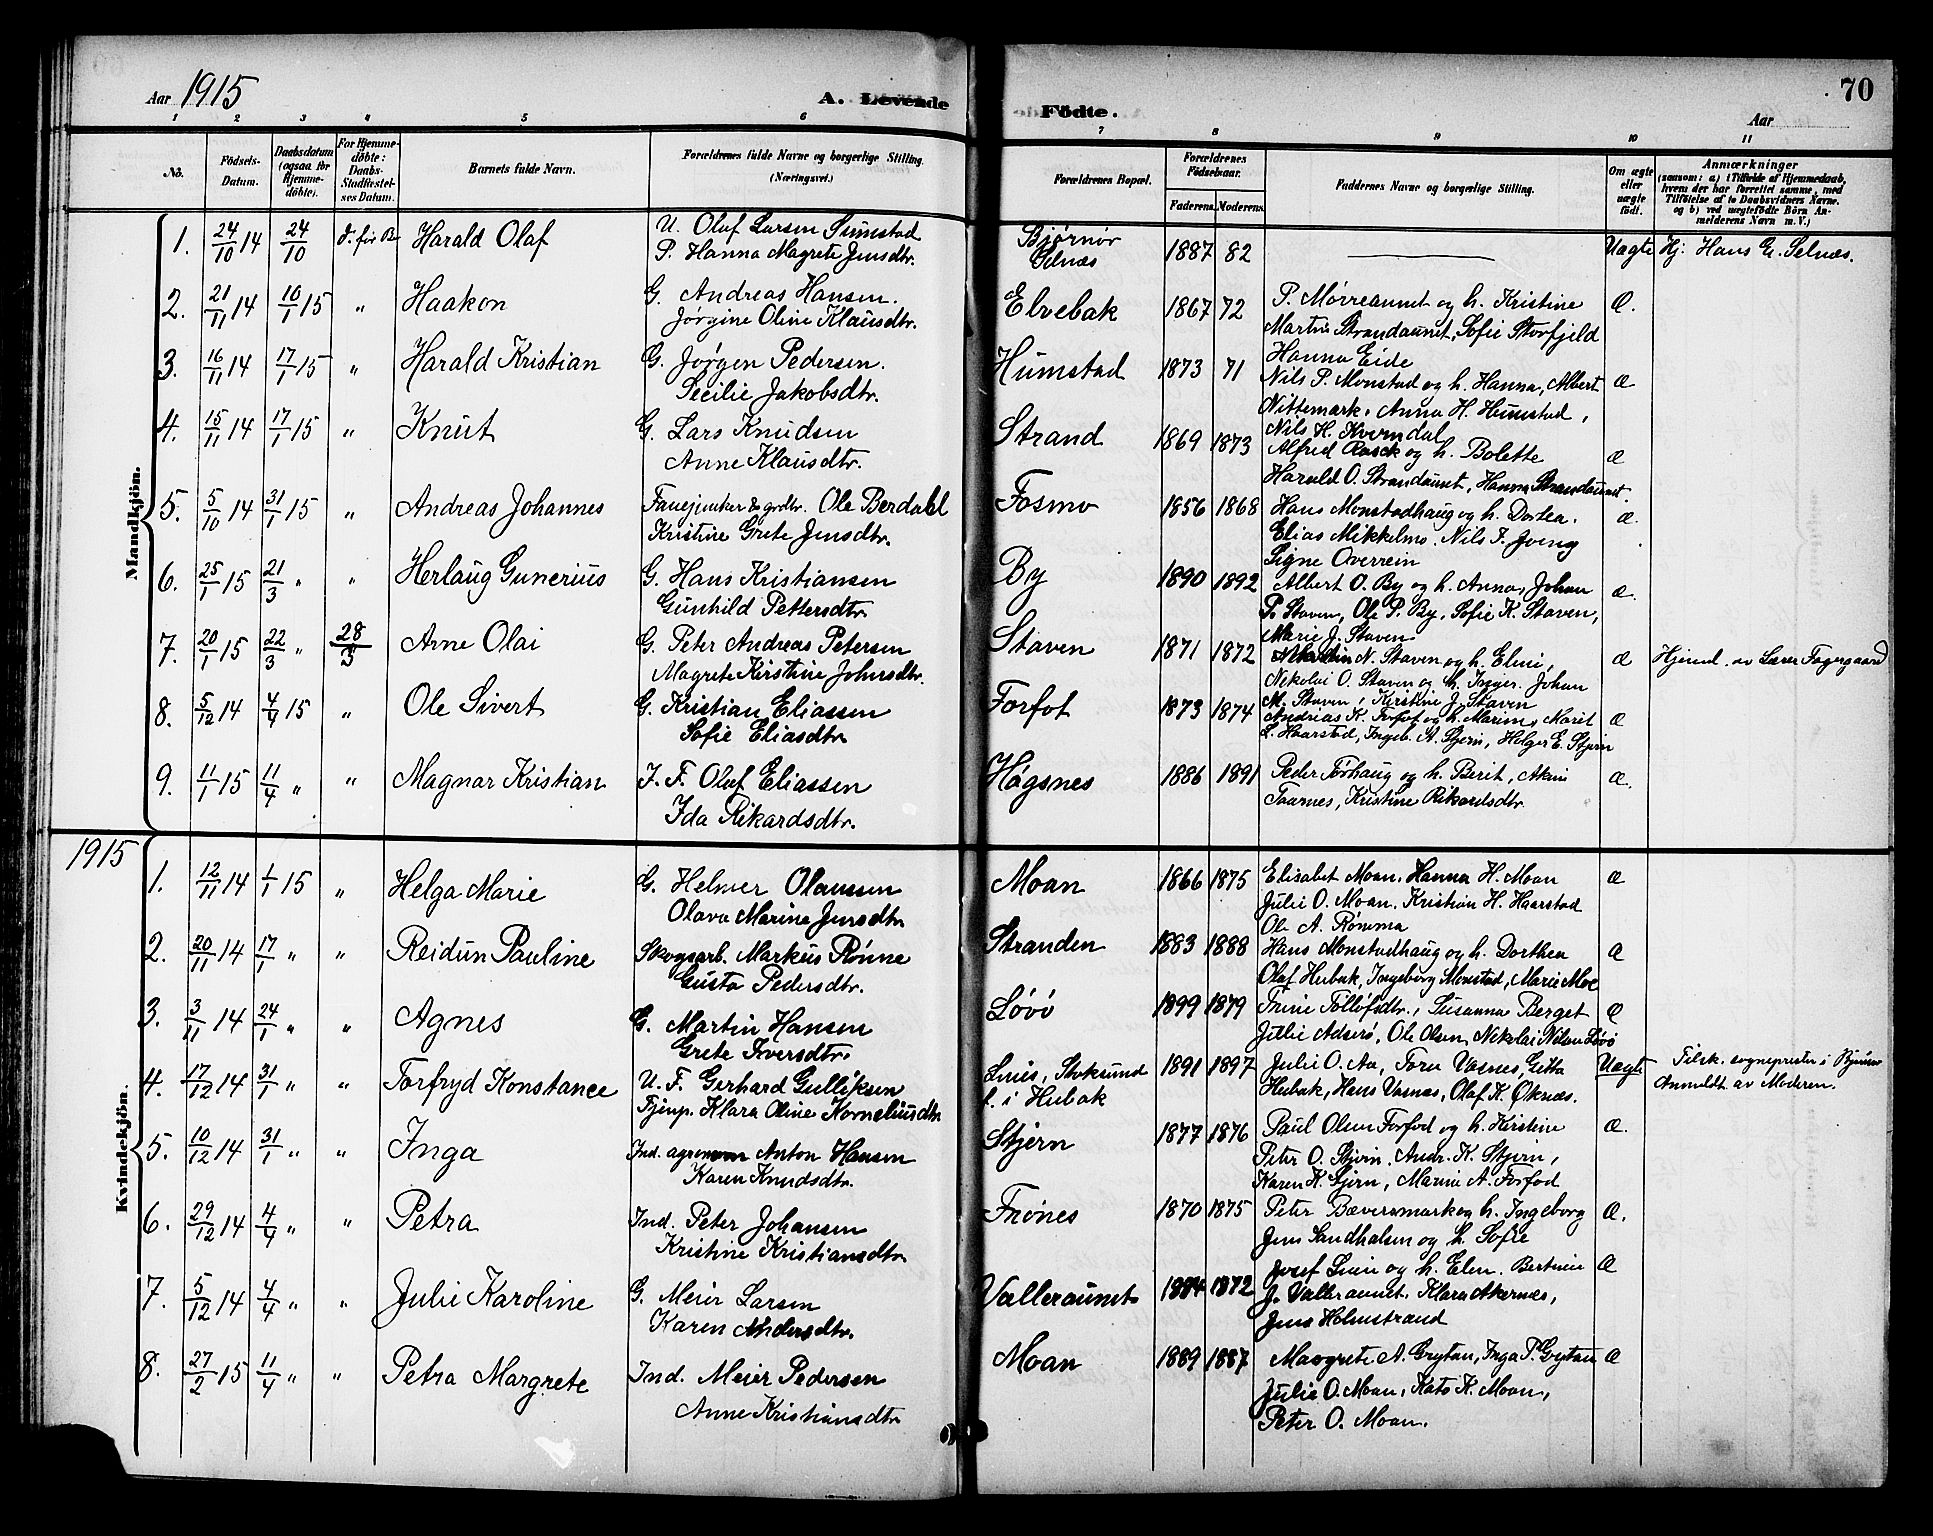 Aar 1915
A. Levende Fødte.
70
Aar
1 2 3 4 5 6 7 8 9 10 11
No.
Födsels-Datum.
Daabsdatum (ogsaa for Hjemmedöbte).
For Hjemmedöbte: Daabs-Stadfæstelses Datum.
Barnets fulde Navn.
Forældrenes fulde Navne og borgerlige Stilling. (Næringsvei.)
Forældrenes Bopæl.
Forældrenes Födselsaar.
Faderens. Moderens.
Faddernes Navne og borgerlige Stilling.
Om ægte eller uægte födt.
Anmærkninger
(saasom: a) i Tilfælde af Hjemmedaab, hvem der har forrettet samme, med Tilföielse af to Daabsvidners Navne, og b) ved uægtefödte Börn Anmelderens Navn m. V.)
Mandkjön.
1. 24/10 14 24/10 d. før B Harald Olaf U. Olaf Larsen Sumstad Bjørnør 1887 82 Uægte Hj. Hans G. Selnæs.
P. Hanna Magrete Jensdtr. Selnæs
2. 21/11 14 10/1 15 " Haakon G. Andreas Hansen. Elvebak 1867 72 P. Mørreaunet og h. Kristine Æ.
Jørgine Oline Klausdtr. Martin Strandaunet, Sofie Storfjeld
Hanna Eide
3. 16/11 14 17/1 15 " Harald Kristian G. Jørgen Pedersen. Humstad 1873 71 Nils P. Monstad og h. Hanna, Albert æ
Secilie Jakobsdtr. Nittemark, Anna H. Humstad,
Nils H. Kverndal
4. 15/11 14 17/1 15 " Knut G. Lars Knudsen Strand 1869 1873 Alfred Rasck og h. Bolette æ
Anne Klausdtr. Harald O. Strandaunet, Hanna Strandaunet.
5. 5/10 14 31/1 15 " Andreas Johannes Fanejunker & grdbr. Ole Berdahl Fosmo 1856 1868 Hans Monstadhaug og h. Dortea. æ.
Kristine Grete Jensdtr. Elias Mikkelmo. Nils J.
Signe Overrein
6. 25/1 15 21/3 " " Herlaug Gunerius G. Hans Kristiansen By 1890 1892 Albert O. By og h. Anna, Johan æ.
Gunhild Pettersdtr. P. Staven, Ole P. By, Sofie K. Staven,
Marie J. Staven
7. 20/1 15 22/3 " 28/3 Arne Olai G. Peter Andreas Petersen Staven 1871 1872 Martin N. Staven og h. Eline, æ Hjemd. av Lærer Fagergaard
Magrete Kirstine Johnsdtr. Nikolai O. Staven og h. Inger. Johan
M. Staven, Kirstine J. Staven
8. 5/12 14 4/4 15 " Ole Sivert G. Kristian Eliassen Forfot 1873 1874 Andreas K. Forfot og h. Marine, Marit æ
Sofie Eliasdtr. L. Haarstad, Ingeb. A. Stjern, Helger E. Stjern
9. 11/1 15 11/4 " " Magnar Kristian I. F. Olaf Eliassen Høgsnes 1886 1891 Peder Tørhaug og h. Berit, æ.
Ida Rikardsdtr. Taarnes, Kristine Rikardsdtr.
1915
Kvindekjön.
1. 12/11 14 1/1 15 " Helga Marie G. Helmer Olaussen Moan 1866 1875 Elisabet Moan, Hanna H. Moan æ
Olava Marina Jensdtr Julie O. Moan, Kristian H. Haarstad
Ole A. Rømma
2. 20/11 14 17/1 " " Reidun Pauline Skogsarb. Markus Rønne Stranden 1883 1888 Hans Monstadhaug og h. Dorthea æ
Gusta Pedersdtr. Olaf Hubak, Ingeborg Monstad, Marie Moe
3. 3/11 14 24/1 " " Agnes G. Martin Hansen Løvø 1899 1879 Trine Tollefsdtr., Susanna Berget æ
Grete Iversdtr. Julie Adserø, Ole Olsen, Nikolai Nilsen Løvø
4. 17/12 14 31/1 " " Torfryd Konstance U. F. Gerhard Gulliksen Lines, Stoksund 1891 1897 Julie O. Aa, Tora Vasnes, Gitta Uægte Tilsk. sogneprester i Bjørnør
Tjenp. Klara Oline Korneliusdtr. f. i Hubak Hubak, Hans Vasnes, Olaf K. Øknæs. Anmeldt av Moderen.
5. 10/12 14 31/1 " " Inga Ind. agronom Anton Hansen Stjern 1877 1876 Paul Olsen Forfod og h. Kirstine æ.
Karen Knudsdtr. Peter O. Stjern, Andr. K. Stjern,
Karen K. Stjern, Marine A. Forfod
6. 29/12 14 4/4 " " Petra Ind. Peter Johansen Frønes 1870 1875 Peter Bæveremark og h. Ingeborg Æ.
Kristine Kristiansdtr. Jens Sandhalsen og h. Sofie
7. 5/12 14 4/4 " " Julie Karoline G. Meier Larsen Valleraunet 1884 1872 Josef Leire og h. Elen. Bertine Æ
Karen Andersdtr. J. Valleraunet, Klara Akernes,
Jens Holmstrand
8. 27/2 15 11/4 " " Petra Margrete Ind. Meier Pedersen Moan 1889 1887 Masgrete A. Grytan, Inga P. Grytan æ
Anne Kristiansdtr. Julie O. Moan, Kato K. Moan,
Peter O. Moan.